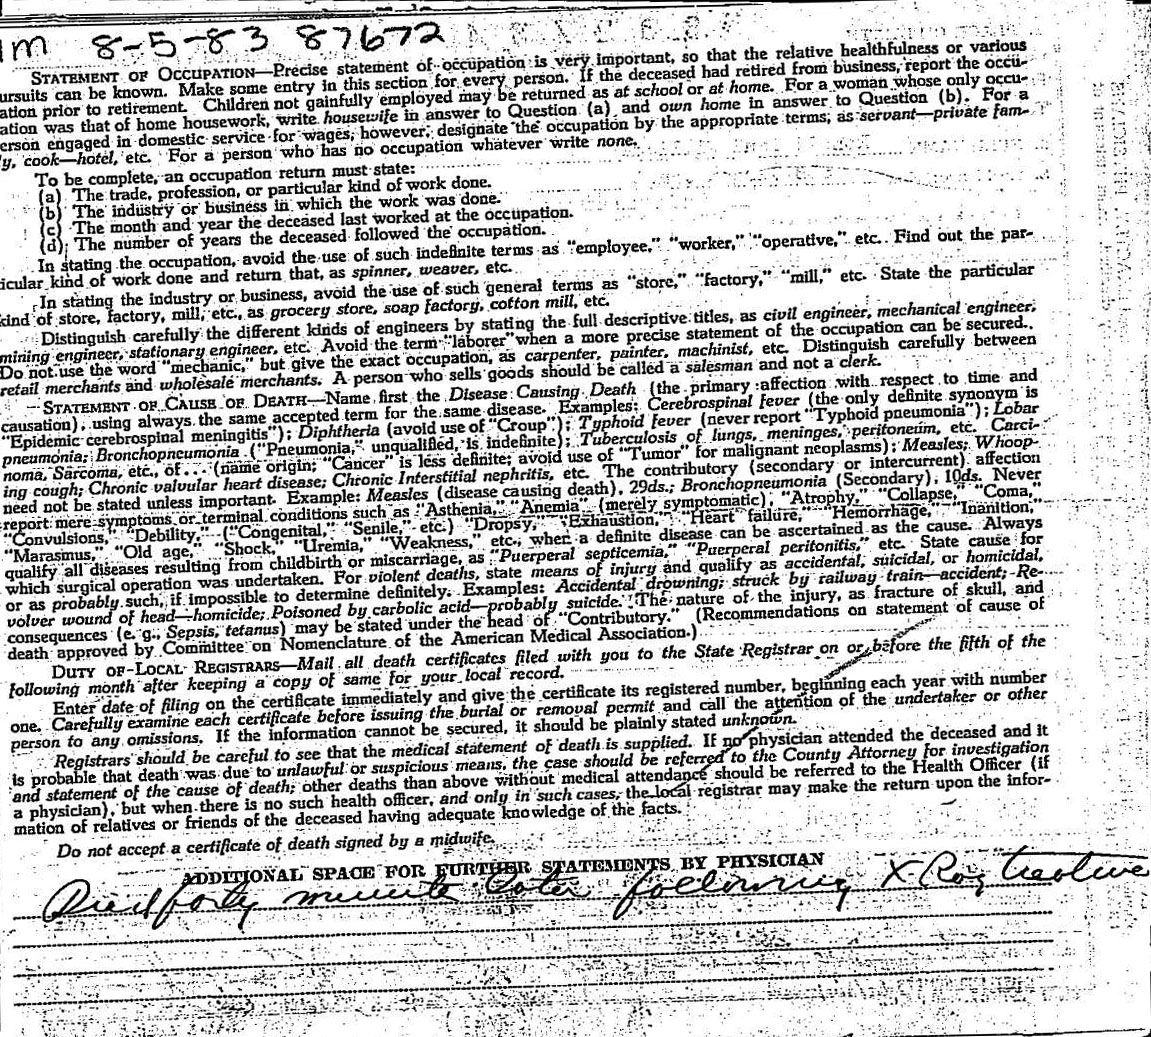 1m 8-5-83 87672
STATEMENT OF OCCUPATION—Precise statement of occupation is very important, so that the relative healthfulness or various
ursuits can be known. Make some entry in this section for every person. If the deceased had retired from business, report the occu-
ation prior to retirement. Children not gainfully employed may be returned as at school or at home. For a woman whose only occu-
ation was that of home housework, write housewife in answer to Question (a) and own home in answer to Question (b). For a
erson engaged in domestic service for wages, however, designate the occupation by the appropriate terms, as servant—private fam-
y, cook—hotel, etc. For a person who has no occupation whatever write none.
To be complete, an occupation return must state:
(a) The trade, profession, or particular kind of work done.
(b) The industry or business in which the work was done.
(c) The month and year the deceased last worked at the occupation.
(d) The number of years the deceased followed the occupation.
In stating the occupation, avoid the use of such indefinite terms as "employee," "worker," "operative," etc. Find out the par-
icular kind of work done and return that, as spinner, weaver, etc.
In stating the industry or business, avoid the use of such general terms as "store," "factory," "mill," etc. State the particular
kind of store, factory, mill, etc., as grocery store, soap factory, cotton mill, etc.
Distinguish carefully the different kinds of engineers by stating the full descriptive titles, as civil engineer, mechanical engineer,
mining engineer, stationary engineer, etc. Avoid the term "laborer" when a more precise statement of the occupation can be secured.
Do not use the word "mechanic," but give the exact occupation, as carpenter, painter, machinist, etc. Distinguish carefully between
retail merchants and wholesale merchants. A person who sells goods should be called a salesman and not a clerk.
STATEMENT OF CAUSE OF DEATH—Name first the Disease Causing Death (the primary affection with respect to time and
causation), using always the same accepted term for the same disease. Examples: Cerebrospinal fever (the only definite synonym is
"Epidemic cerebrospinal meningitis"); Diphtheria (avoid use of "Croup"); Typhoid fever (never report "Typhoid pneumonia"); Lobar
pneumonia; Bronchopneumonia ("Pneumonia," unqualified, is indefinite); Tuberculosis of lungs, meninges, peritoneum, etc. Carci-
noma, Sarcoma, etc., of . . . (name origin; "Cancer" is less definite; avoid use of "Tumor" for malignant neoplasms); Measles; Whoop-
ing cough; Chronic valvular heart disease; Chronic Interstitial nephritis, etc. The contributory (secondary or intercurrent) affection
need not be stated unless important. Example: Measles (disease causing death), 29ds.; Bronchopneumonia (Secondary), 10ds. Never
report mere symptoms or terminal conditions such as "Asthenia," "Anemia" (merely symptomatic), "Atrophy," "Collapse," "Coma,"
"Convulsions," "Debility," ("Congenital," "Senile," etc.) "Dropsy," "Exhaustion," "Heart failure," "Hemorrhage," "Inanition,"
"Marasmus," "Old age," "Shock," "Uremia," "Weakness," etc., when a definite disease can be ascertained as the cause. Always
qualify all diseases resulting from childbirth or miscarriage, as "Puerperal septicemia," "Puerperal peritonitis," etc. State cause for
which surgical operation was undertaken. For violent deaths, state means of injury and qualify as accidental, suicidal, or homicidal,
or as probably such, if impossible to determine definitely. Examples: Accidental drowning; struck by railway train—accident; Re-
volver wound of head—homicide; Poisoned by carbolic acid—probably suicide. The nature of the injury, as fracture of skull, and
consequences (e. g., Sepsis, tetanus) may be stated under the head of "Contributory." (Recommendations on statement of cause of
death approved by Committee on Nomenclature of the American Medical Association.)
DUTY OF LOCAL REGISTRARS—Mail all death certificates filed with you to the State Registrar on or before the fifth of the
following month after keeping a copy of same for your local record.
Enter date of filing on the certificate immediately and give the certificate its registered number, beginning each year with number
one. Carefully examine each certificate before issuing the burial or removal permit and call the attention of the undertaker or other
person to any omissions. If the information cannot be secured, it should be plainly stated unknown.
Registrars should be careful to see that the medical statement of death is supplied. If no physician attended the deceased and it
is probable that death was due to unlawful or suspicious means, the case should be referred to the County Attorney for investigation
and statement of the cause of death; other deaths than above without medical attendance should be referred to the Health Officer (if
a physician), but when there is no such health officer, and only in such cases, the local registrar may make the return upon the infor-
mation of relatives or friends of the deceased having adequate knowledge of the facts.
Do not accept a certificate of death signed by a midwife.
ADDITIONAL SPACE FOR FURTHER STATEMENTS BY PHYSICIAN
Died forty minute later following X Ray